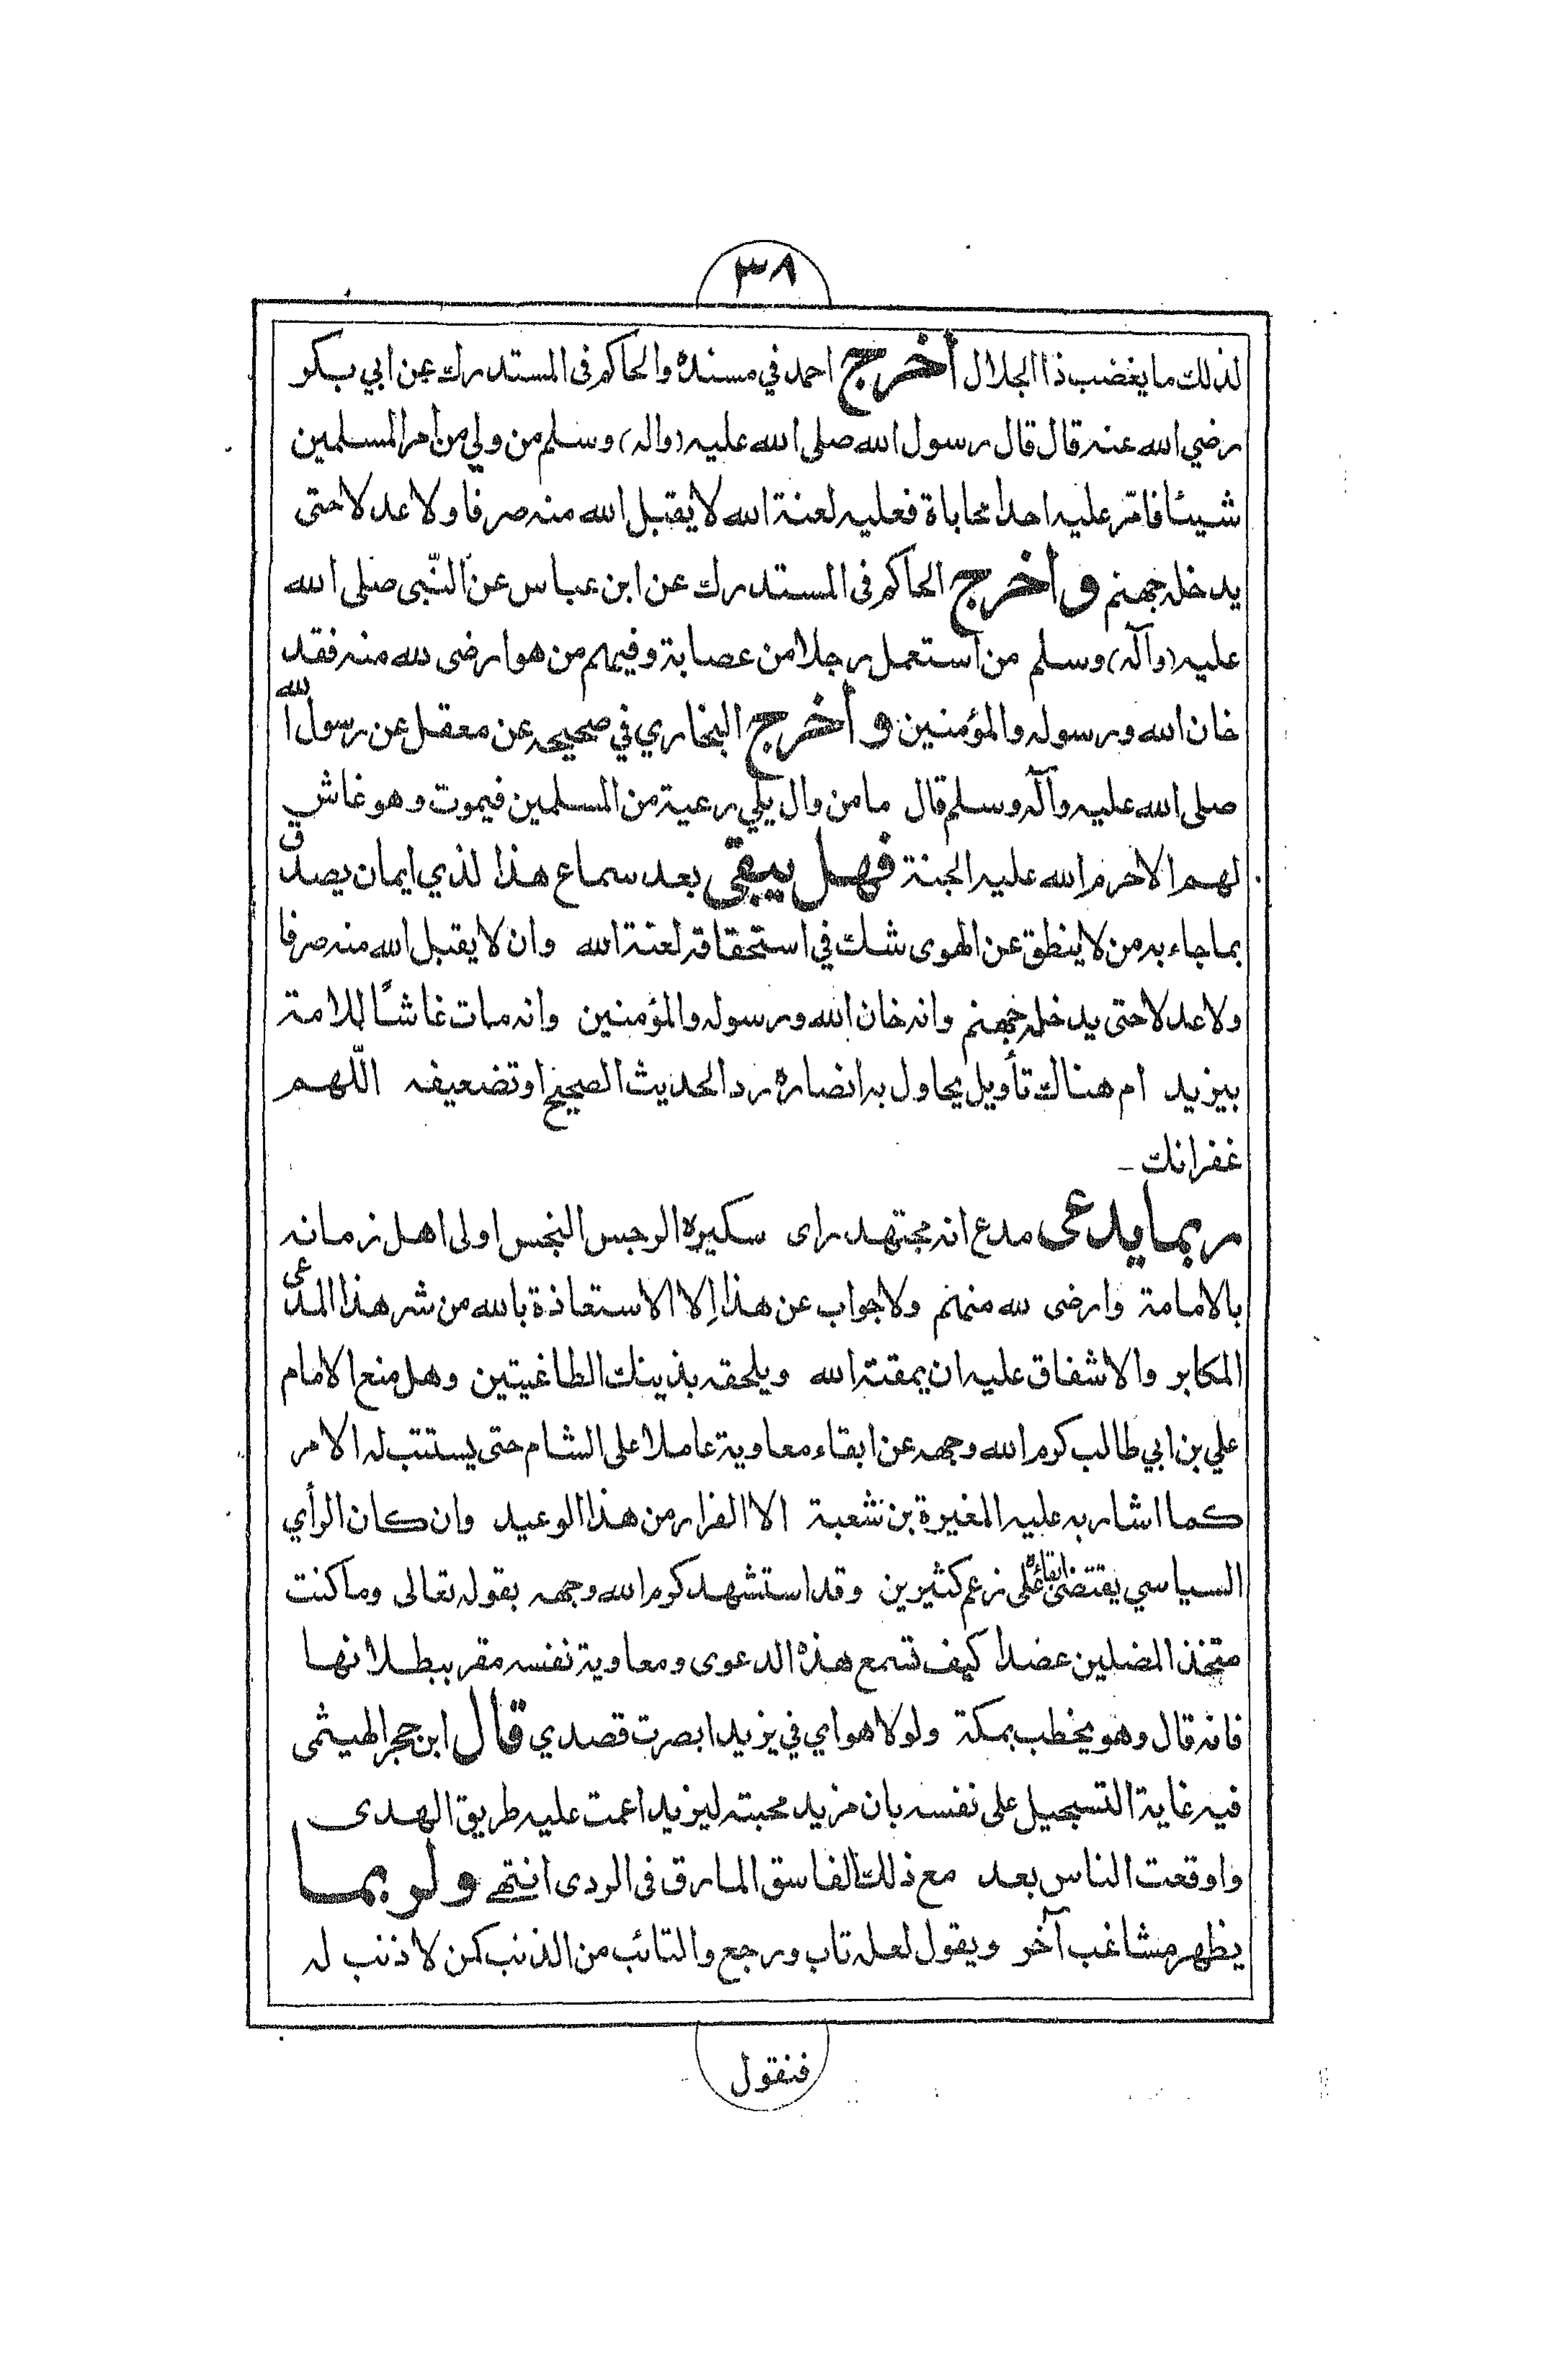 ٣٨
لذلك ما يغضب ذا الجلال أخرج احمد في مسنده والحاكم في المستدرك عن ابي بكر
رضي الله عنه قال قال رسول الله صلى الله عليه (واله) وسلم من ولي من أمر المسلمين
شيئا فامّر عليه احدا محاباة فعليه لعنة الله لا يقبل الله منه صرفا ولا عدلا حتى
يدخله جهنم وأخرج الحاكم فى المستدرك عن ابن عباس عن النّبى صلى الله
عليه (وآله) وسلم من استعمل رجلا من عصابة وفيهم من هو ارضى لله منه فقد
خان الله ورسوله والمؤمنين وأخرج البخاري في صحيحه عن معقل عن رسول الله
صلى الله عليه وآله وسلم قال ما من وال يلي رعية من المسلمين فيموت وهو غاش
لهم الا حرم الله عليه الجنة فهل يبقى بعد سماع هذا لذي ايمان يصدّق
بما جاء به من لا ينطق عن الهوى شك في استحقاقه لعنة الله وان لا يقبل الله منه صرفا
ولا عدلا حتى يدخله جهنم وانه خان الله ورسوله والمؤمنين وانه مات غاشًا للامة
بيزيد ام هناك تأويل يحاول به انصاره رد الحديث الصحيح او تضعيفه اللّهم
غفرانك –
ربما يدعى مدع انه مجتهد راى سكيره الرجس النجس اولى اهل زمانه
بالامامة وارضى لله منهم ولا جواب عن هذا إلا الاستعاذة بالله من شر هذا المدّعى
المكابر والاشفاق عليه ان يمقته الله ويلحقه بذينك الطاغيتين وهل منع الامام
علي بن ابي طالب كرم الله وجهه عن ابقاء معاوية عاملا على الشام حتى يستتب له الامر
كما اشار به عليه المغيرة بن شعبة الا الفرار من هذا الوعيد وان كان الرأي
السياسي يقتضى ابقائه على زعم كثيرين وقد استشهد كرم الله وجهه بقوله تعالى وما كنت
متخذ المضلين عضدا كيف تسمع هذه الدعوى ومعاوية نفسه مقر ببطلانها
فانه قال وهو يخطب بمكة ولولا هواي في يزيد ابصرت قصدي قال ابن حجر الهيثمى
فيه غاية التسجيل على نفسه بان مزيد محبته ليزيد اعمت عليه طريق الهدى
واوقعت الناس بعد مع ذلك الفاسق المارق فى الردى انتهى ولربما
يظهر مشاغب آخر ويقول لعله تاب ورجع والتائب من الذنب كمن لا ذنب له
فنقول